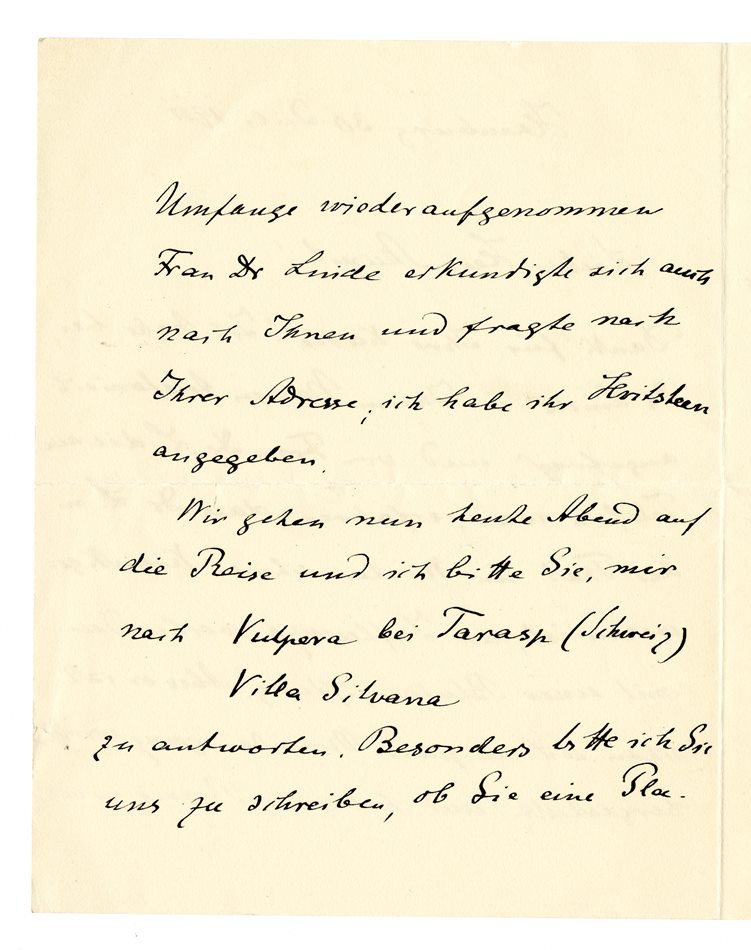 Umfange wieder aufgenommen
Frau Dr Linde erkundigte sich auch
nach Ihnen und fragte nach
Ihrer Adresse, ich habe ihr Hvitsteen
angegeben.
Wir gehen nun heute Abend auf
die Reise und ich bitte Sie, mir
nach Vulpera bei Tarasp (Schweiz)
Villa Silvana
zu antworten. Besonders bitte ich Sie
uns zu schreiben, ob Sie eine Pla-